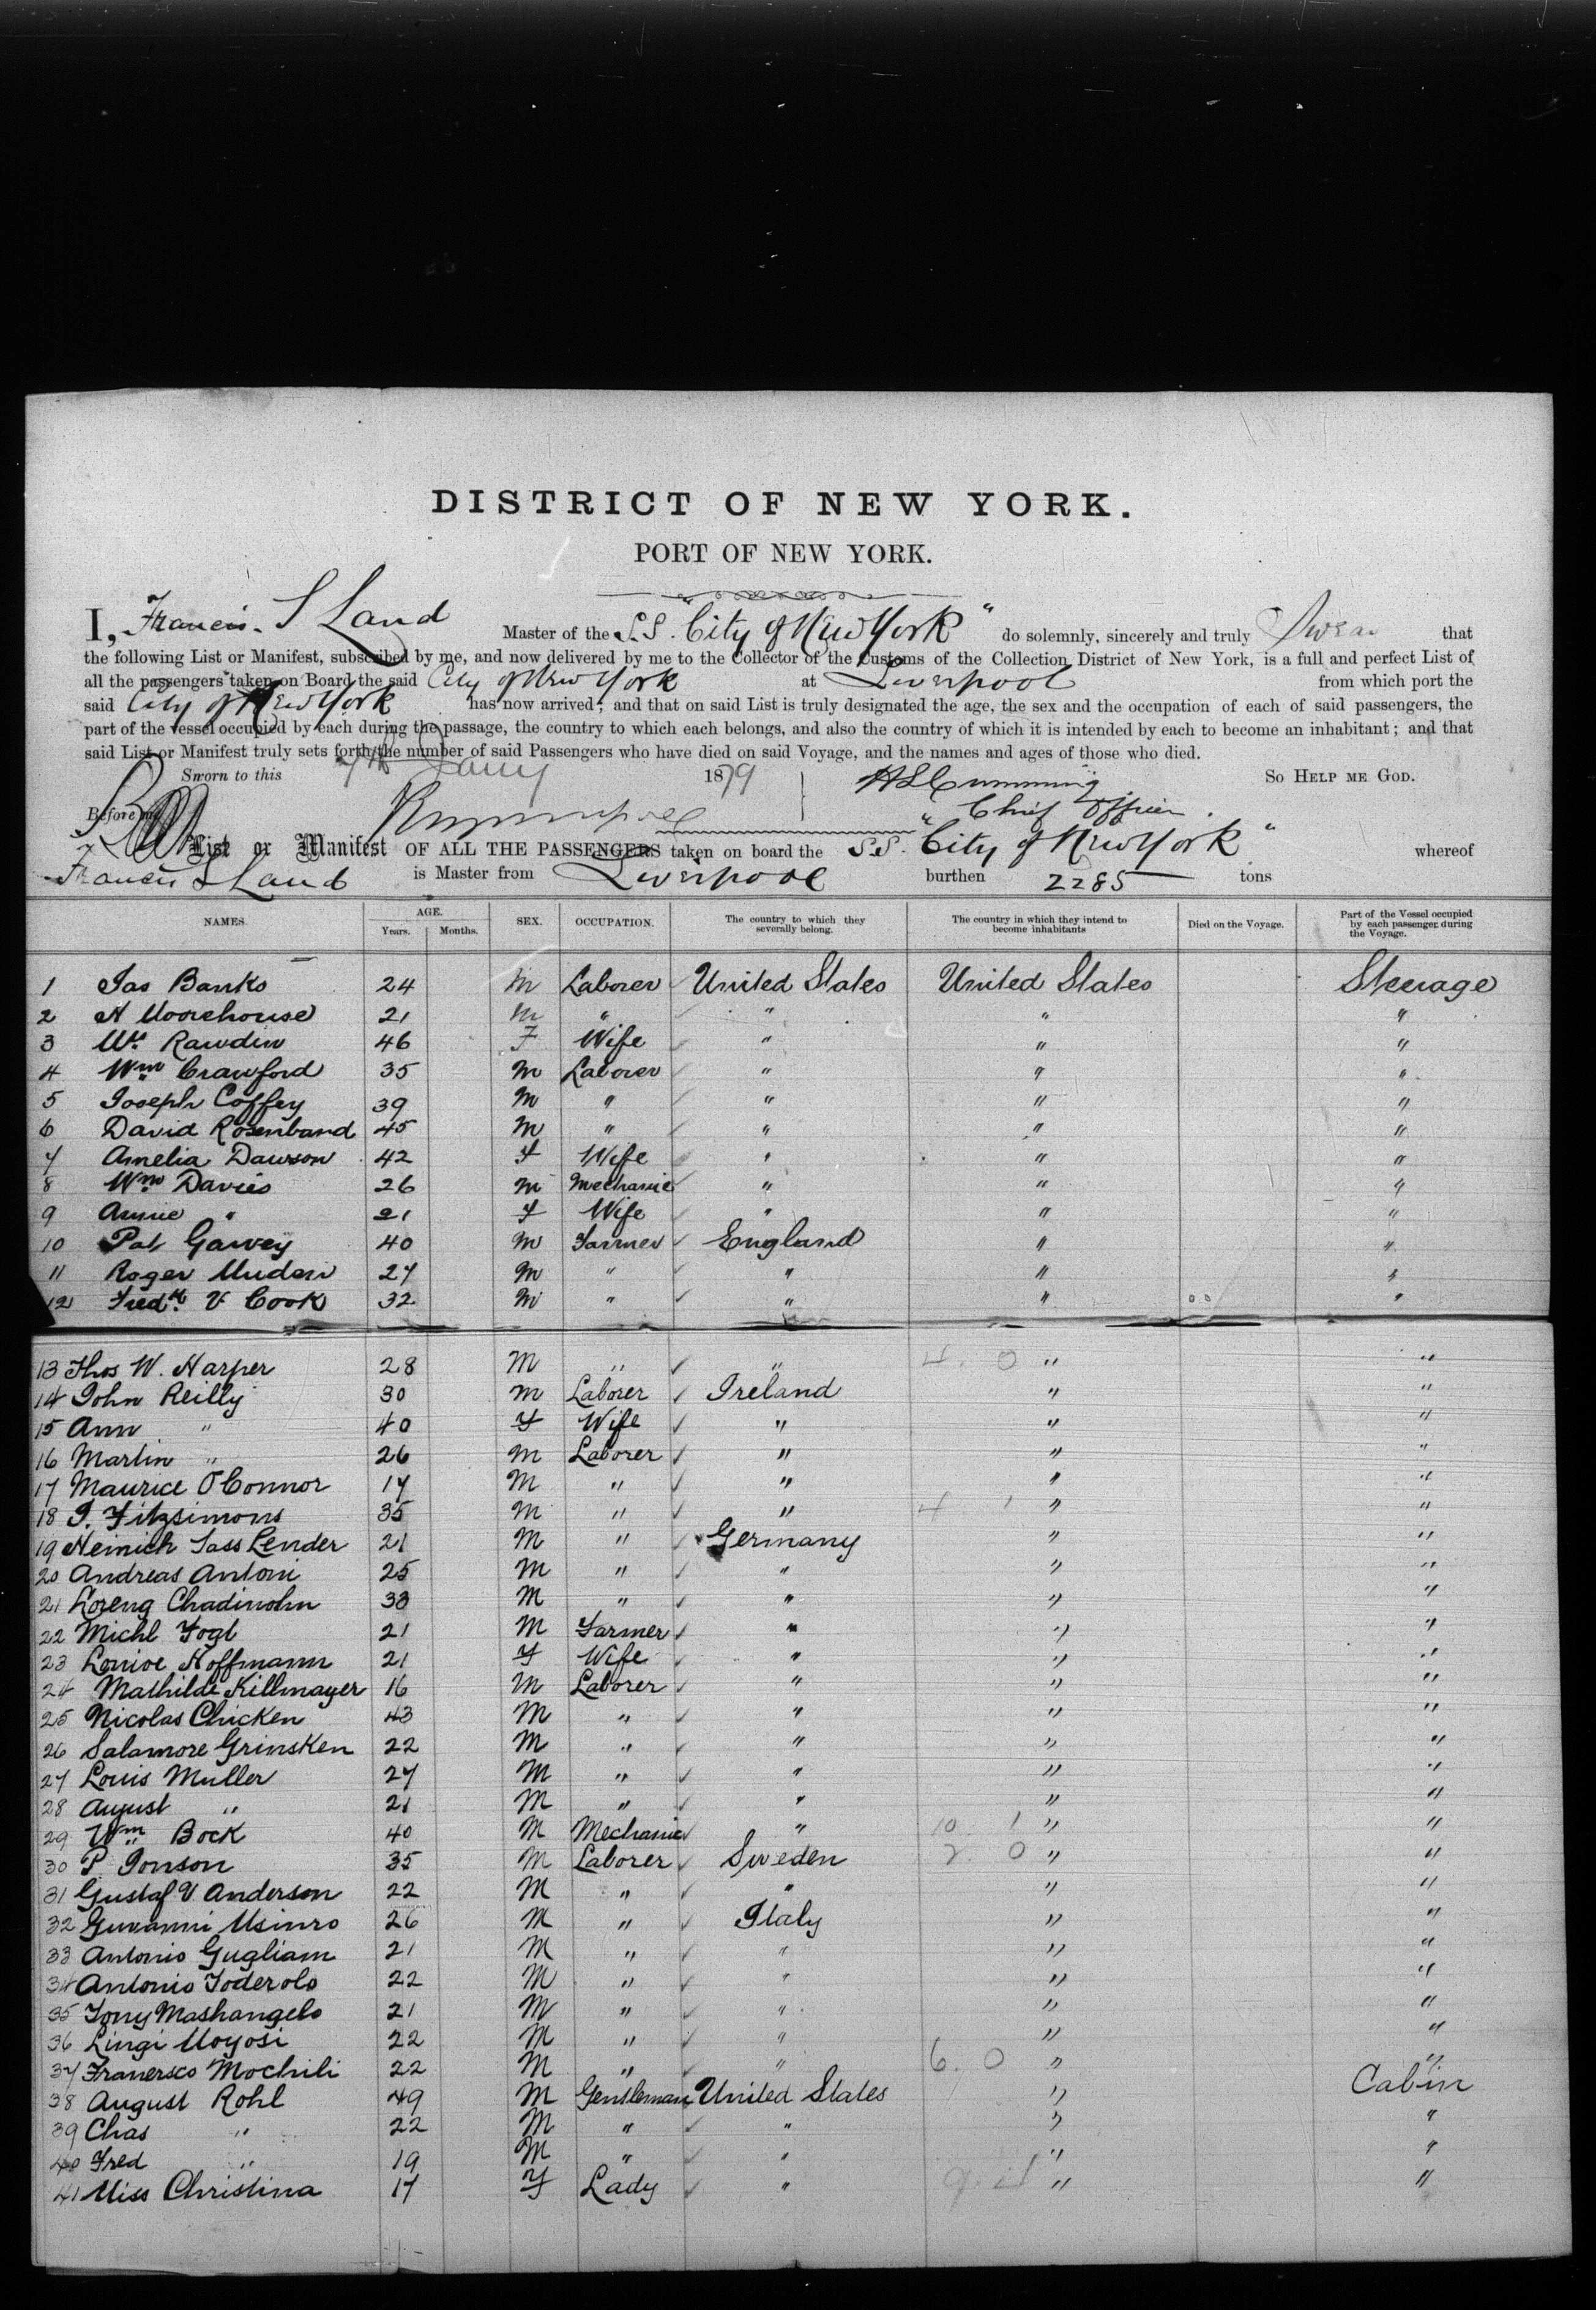 DISTRICT OF NEW YORK.
PORT OF NEW YORK.
I, Francis S Land Master of the S.S. "City of New York" do solemnly, sincerely and truly Swear that
the following List or Manifest, subscribed by me, and now delivered by me to the Collector of the Customs of the Collection District of New York, is a full and perfect List of
all the passengers taken on Board the said City of New York at Liverpool from which port the
said City of New York has now arrived; and that on said List is truly designated the age, the sex and the occupation of each of said passengers, the
part of the vessel occupied by each during the passage, the country to which each belongs, and also the country of which it is intended by each to become an inhabitant; and that
said List or Manifest truly sets forth the number of said Passengers who have died on said Voyage, and the names and ages of those who died.
Sworn to this 7th Jany 1879 So HELP ME GOD.
H S Cumming
Chief Officer.
Before me
List or Manifest OF ALL THE PASSENGERS taken on board the S.S. "City of New York" whereof
Francis S Land is Master from Liverpool burthen 2285 tons
NAMES. AGE. SEX. OCCUPATION. The country to which they severally belong. The country in which they intend to become inhabitants Died on the Voyage. Part of the Vessel occupied by each passenger during the Voyage.
Years. Months.
1 Jas Banks 24 M Laborer United States United States Steerage
2 H Moorehouse 21 M " " " "
3 Rawdin 46 F Wife " " "
4 Wm Crawford 35 M Laborer " " "
5 Joseph Coffey 39 M " " " "
6 David Rosenband 45 M " " " "
7 Amelia Dawson 42 F Wife " " "
8 Wm Davies 26 M Mechanic " " "
9 Annie " 21 F Wife " " "
10 Pat Garvey 40 M Farmer England " "
11 Roger 27 M " " " "
12 Fredk V Cook 32 M " " " "
13 Thos W. Harper 28 M " " 4 0 " "
14 John Reilly 30 M Laborer Ireland " "
15 Ann " 40 F Wife " " "
16 Martin " 26 M Laborer " " "
17 Maurice O'Connor 17 M " " " "
18 J. Fitzsimons 35 M " " 4 1 " "
19 Heinich Sass Lender 21 M " Germany " "
20 Andreas Antoni 25 M " " " "
21 Loreng Chadinohn 33 M " " " "
22 Michl Fogt 21 M Farmer " " "
23 Louise Hoffmann 21 F Wife " " "
24 Mathilde Killmayer 16 M Laborer " " "
25 Nicolas Chicken 43 M " " " "
26 Salamore Grinsken 22 M " " " "
27 Louis Muller 27 M " " " "
28 August " 21 M " " " "
29 Wm Bock 40 M Mechanic " 10 1 " "
30 P Jonson 35 M Laborer Sweden 2. 0 " "
31 Gustaf V Anderson 22 M " " " "
32 Guvanni Usinro 26 M " Italy " "
33 Antonio Gugliam 21 M " " " "
34 Antonio Foderolo 22 M " " " "
35 Tony Mashangelo 21 M " " " "
36 Lingi Moyosi 22 M " " " "
37 Franersco Mochili 22 M " " 6. 0 " "
38 August Rohl 49 M Gentleman United States " Cabin
39 Chas " 22 M " " " "
40 Fred " 19 M " " " "
41 Miss Christina 17 F Lady " " "